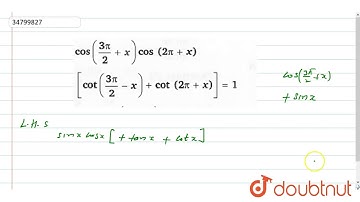 34799827
cos(3π/2 + x) cos (2π + x)
[cot(3π/2 − x) + cot (2π + x)] = 1
cos(3π/2 + x)
+ sinx
L.H.S
sinx cosx [+ tanx + cotx]
doubtnut